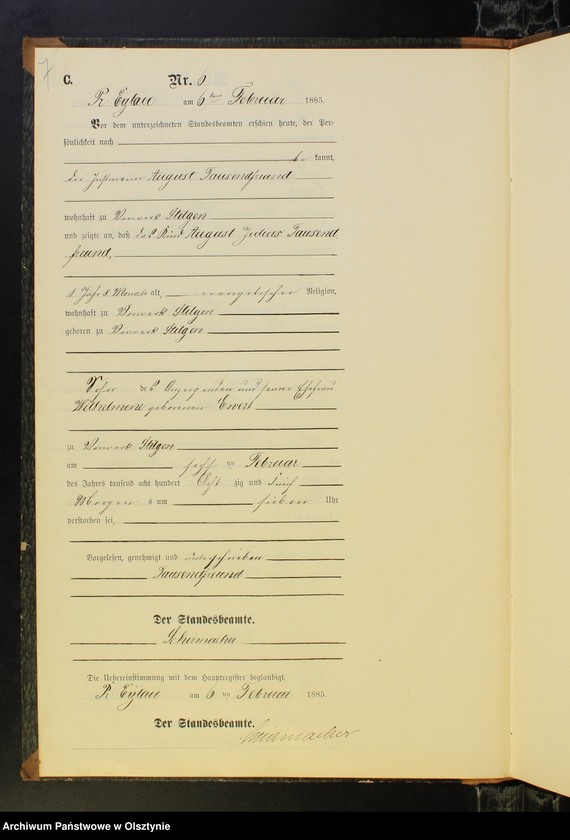 7
C.
Nr. 6
Pr. Eylau am 6ten Februar 1885.
Vor dem unterzeichneten Standesbeamten erschien heute, der Per-
sönlichkeit nach
be kannt,
der Instmann August Tausendfreund
wohnhaft zu Vorwerk Stilgen
und zeigte an, daß das Kind August Julius Tausend
freund,
1 Jahr 8 Monate alt, evangelischer Religion,
wohnhaft zu Vorwerk Stilgen
geboren zu Vorwerk Stilgen
Sohn des Anzeigenden und seiner Ehefrau
Wilhelmine geborenen Ewert
zu Vorwerk Stilgen
am sechs ten Februar
des Jahres tausend acht hundert Acht zig und fünf
Morgen s um sieben Uhr
verstorben sei,
Vorgelesen, genehmigt und unterschrieben
Tausendfreund
Der Standesbeamte.
Die Uebereinstimmung mit dem Hauptregister beglaubigt.
Pr. Eylau am 6 ten Februar 1885.
Der Standesbeamte.
Archiwum Państwowe w Olsztynie